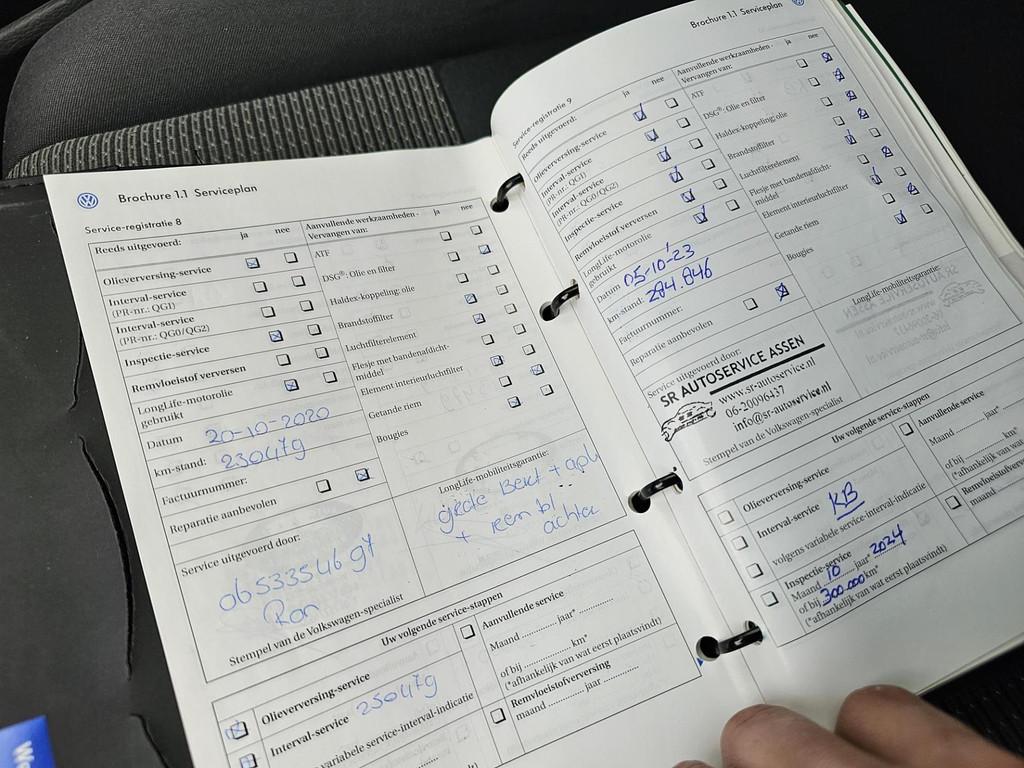 Brochure 1.1 Serviceplan
Service-registratie 8
Reeds uitgevoerd: ja nee
Olieverversing-service
Interval-service
(PR-nr.: QG1)
Interval-service
(PR-nr.: QG0/QG2)
Inspectie-service
Remvloeistof verversen
LongLife-motorolie
gebruikt
Datum 20-10-2020
km-stand: 230479
Factuurnummer:
Reparatie aanbevolen
Service uitgevoerd door:
0653354697
Ron
Stempel van de Volkswagen-specialist
Aanvullende werkzaamheden - ja nee
Vervangen van:
ATF
DSG®: Olie en filter
Haldex-koppeling: olie
Brandstoffilter
Luchtfilterelement
Flesje met bandenafdicht-
middel
Element interieurluchtfilter
Getande riem
Bougies
LongLife-mobiliteitsgarantie:
+ rem bl
achter
Uw volgende service-stappen
Olieverversing-service
Interval-service 250479
variabele service-interval-indicatie
Aanvullende service
Maand ............ jaar* ............
of bij ............ km*
(*afhankelijk van wat eerst plaatsvindt)
Remvloeistofverversing
maand ............ jaar ............
Brochure 1.1 Serviceplan
Service-registratie 9
Reeds uitgevoerd: ja nee
Olieverversing-service
Interval-service
(PR-nr.: QG1)
Interval-service
(PR-nr.: QG0/QG2)
Inspectie-service
Remvloeistof verversen
LongLife-motorolie
gebruikt
Datum 05-10-'23
km-stand: 284.846
Factuurnummer:
Reparatie aanbevolen
Service uitgevoerd door:
SR AUTOSERVICE ASSEN
www.sr-autoservice.nl
06-20096437
info@sr-autoservice.nl
Stempel van de Volkswagen-specialist
Aanvullende werkzaamheden - ja nee
Vervangen van:
ATF
DSG®: Olie en filter
Haldex-koppeling: olie
Brandstoffilter
Luchtfilterelement
Flesje met bandenafdicht-
middel
Element interieurluchtfilter
Getande riem
Bougies
LongLife-mobiliteitsgarantie:
Uw volgende service-stappen
Olieverversing-service
Interval-service KB
volgens variabele service-interval-indicatie
Inspectie-service
Maand 10 jaar* 2024
of bij 300.000 km*
(*afhankelijk van wat eerst plaatsvindt)
Aanvullende service
Maand ............ jaar*
of bij ............ km*
(*afhankelijk van
Remvloeistofver
maand ............